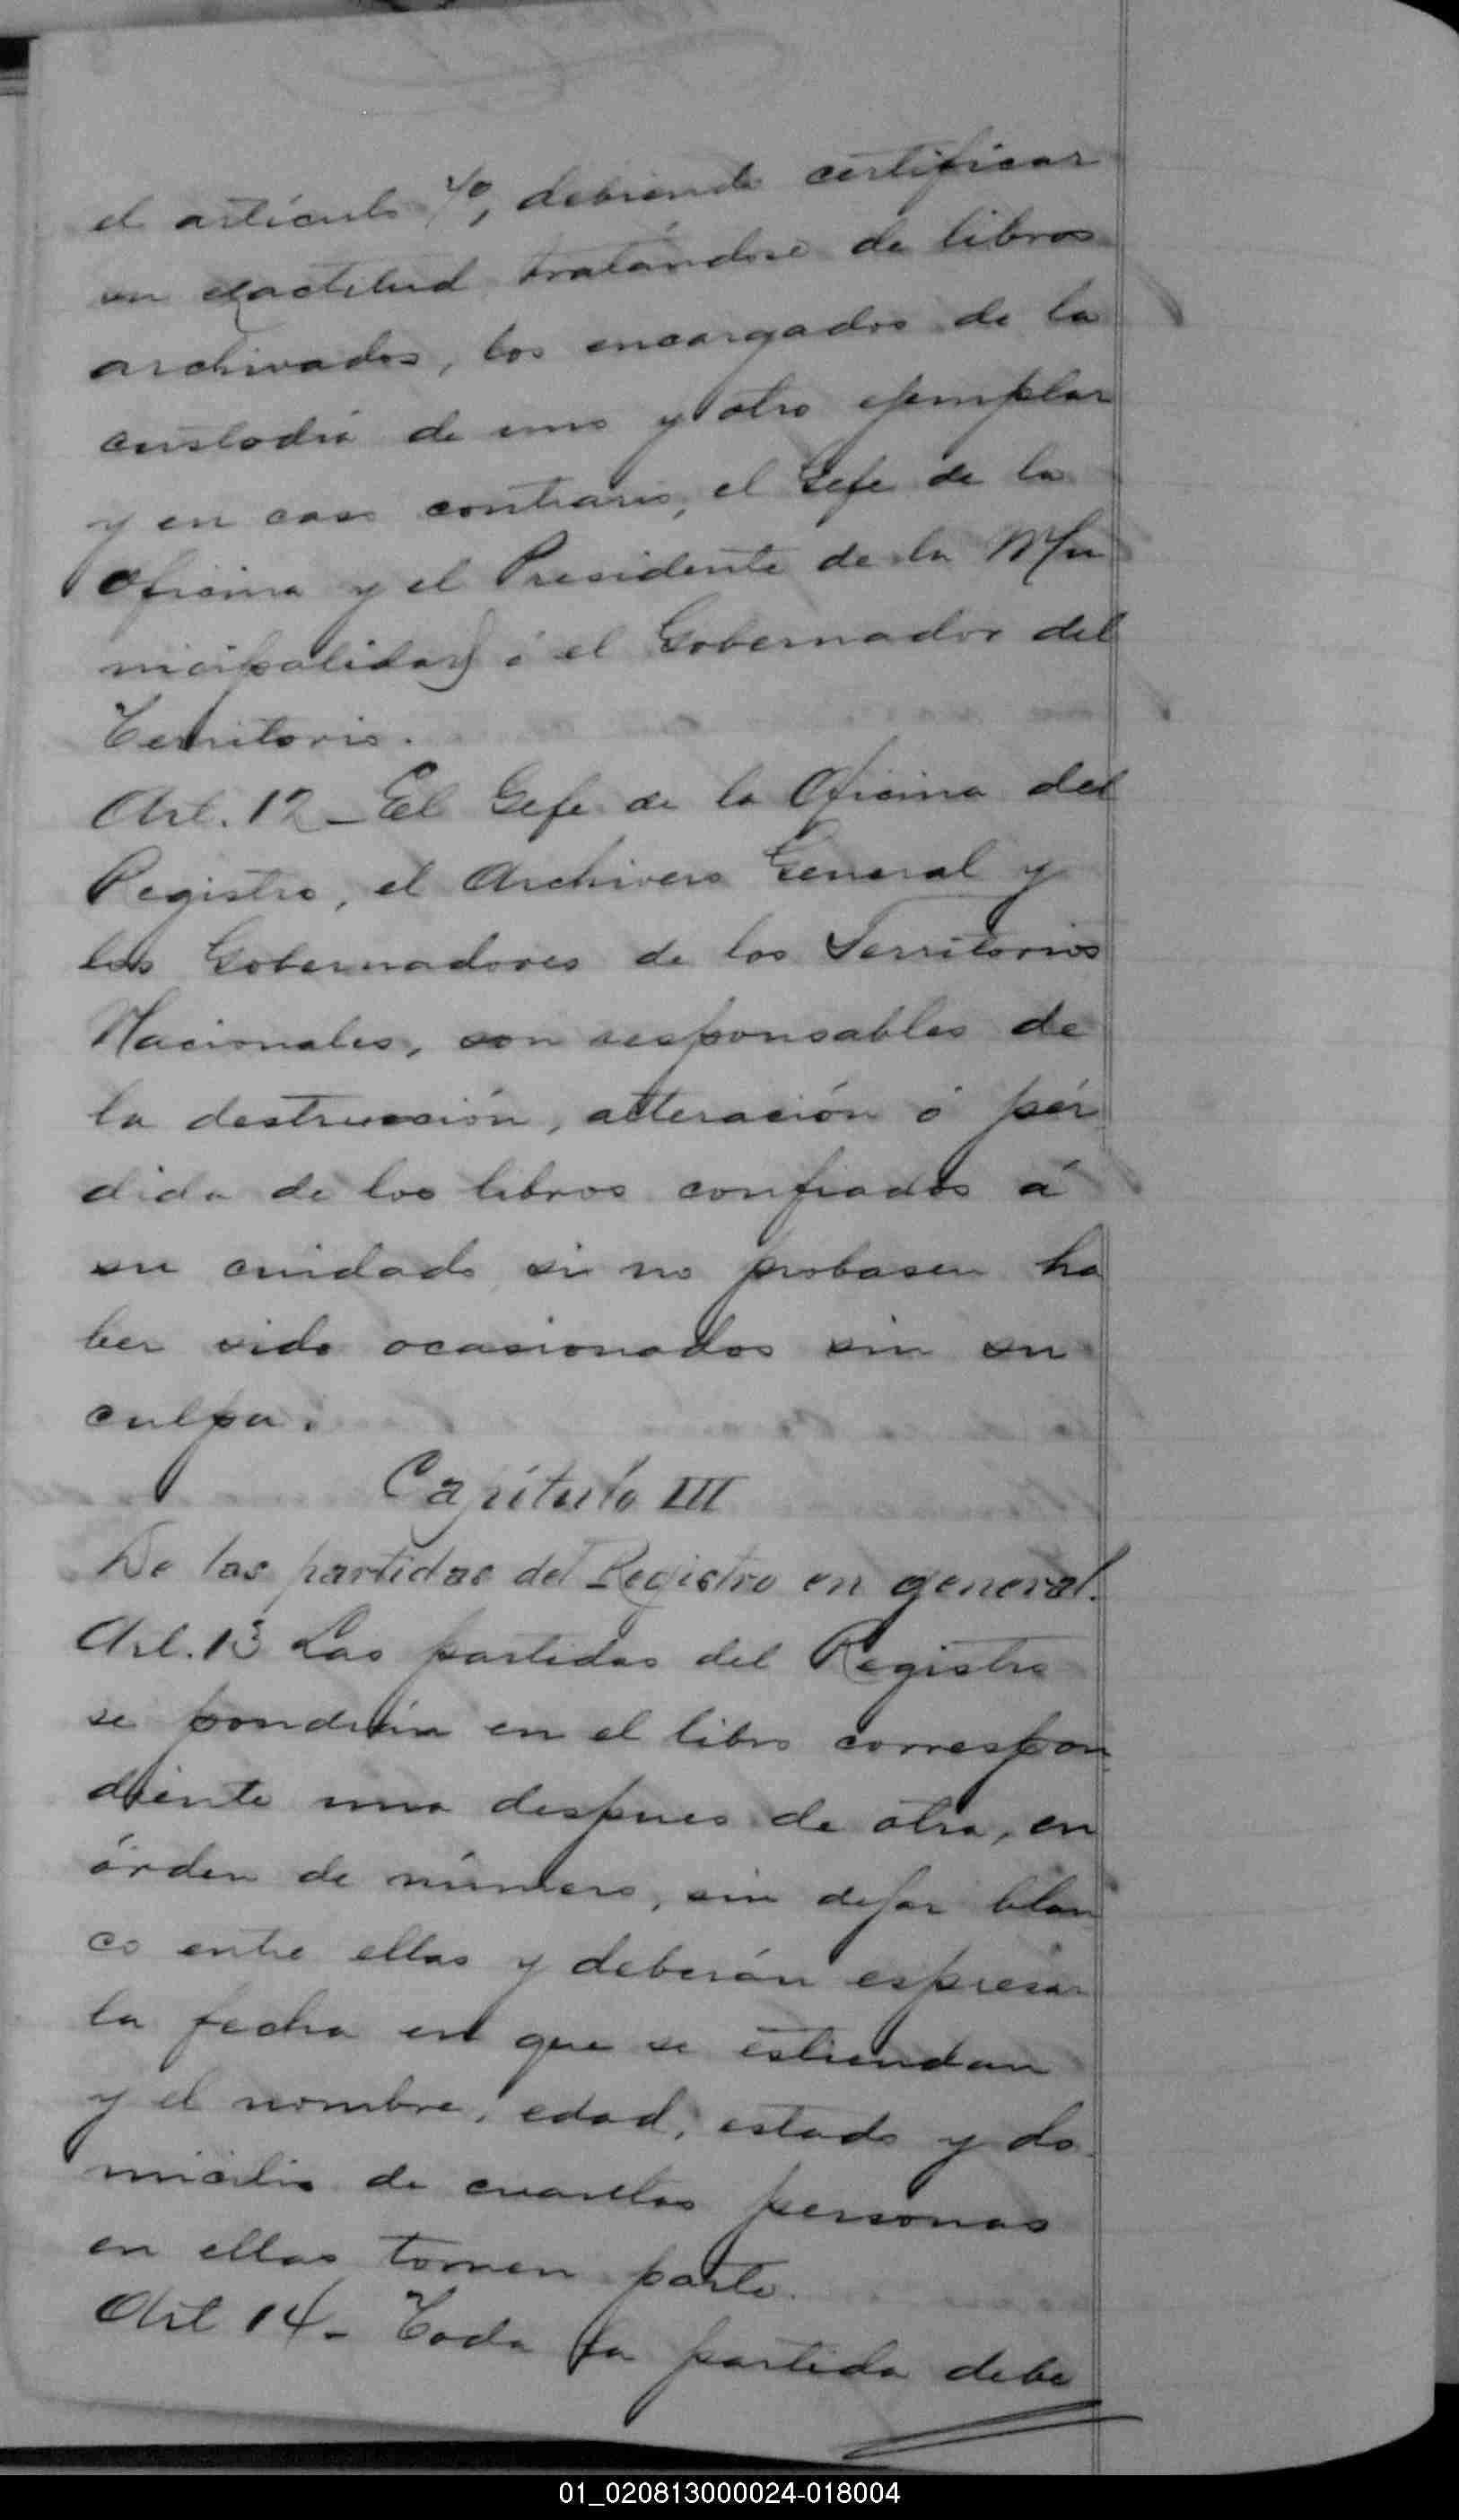 el artículo 7º, debiendo certificar
su exactitud tratándose de libros
archivados, los encargados de la
custodia de uno y otro ejemplar
y en caso contrario, el Gefe de la
Oficina y el Presidente de la Mu
nicipalidad ó el Gobernador del
Territorio.
Art. 12 - El Gefe de la Oficina del
Registro, el Archivero General y
los Gobernadores de los Territorios
Nacionales, son responsables de
la destrucción, alteración ó pér
dida de los libros confiados á
su cuidado si no probasen ha
ber sido ocasionados sin su
culpa.
Capítulo III
De las partidas del Registro en general.
Art. 13 Las partidas del Registro
se pondrán en el libro correspon
diente una despues de otra, en
órden de número, sin dejar blan
co entre ellas y deberán espresar
la fecha en que se estiendan
y el nombre, edad, estado y do
micilio de cuantas personas
en ellas tomen parte.
Art 14 - Toda la partida debe
01_020813000024-018004